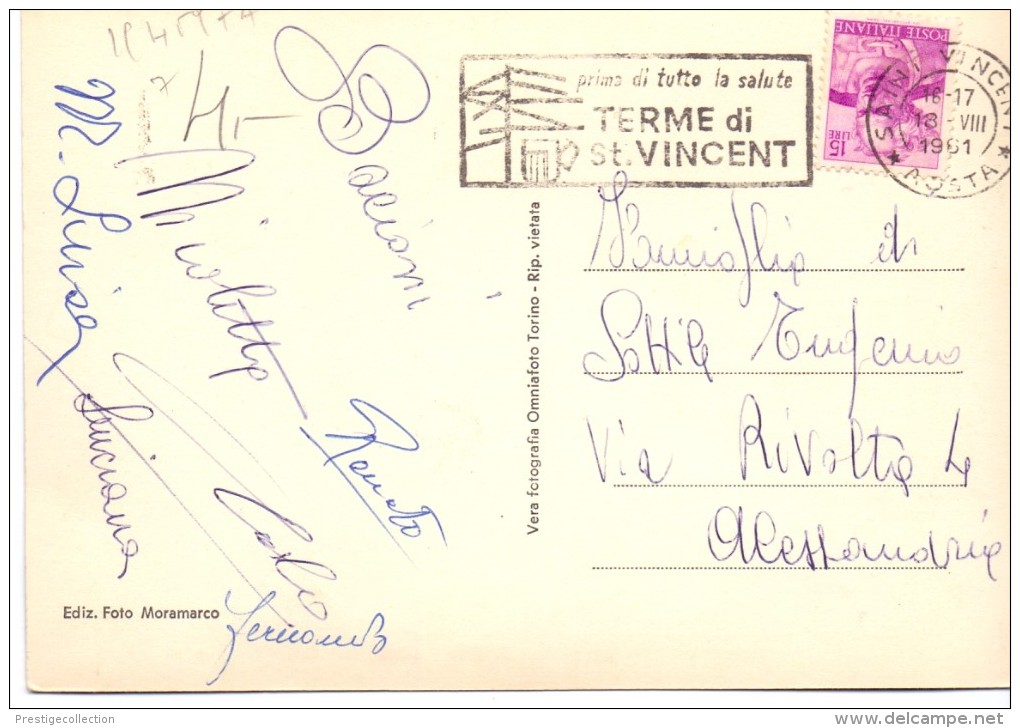 4,-
Bacioni
M. Luisa
Nicoletta
Renato
Luciana
Carlo
Fernando
Ediz. Foto Moramarco
Vera fotografia Omniafoto Torino - Rip. vietata
prima di tutto la salute
TERME di
St. VINCENT
POSTE ITALIANE
15
LIRE
SAINT VINCENT
16-17
18 VIII
1961
★ AOSTA ★
Famiglia di
Sottile Eugenio
Via Rivolta 4
Alessandria
Prestigecollection
delcampe.net